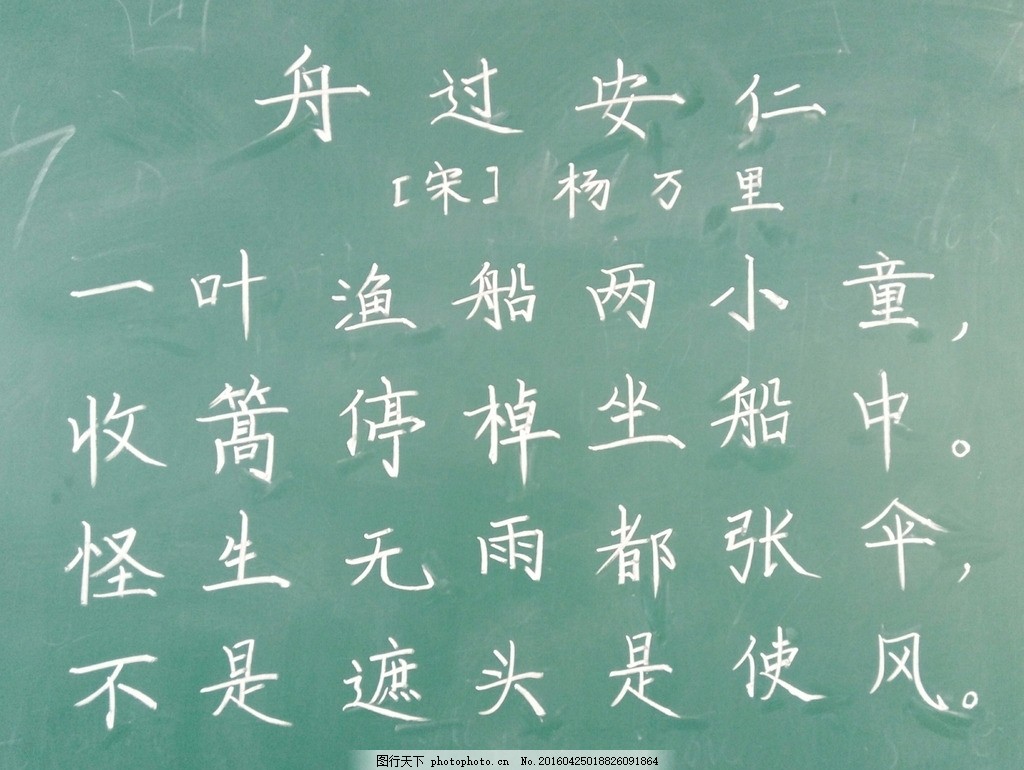 舟过安仁
[宋] 杨万里
一叶渔船两小童，
收篙停棹坐船中。
怪生无雨都张伞，
不是遮头是使风。
图行天下 photophoto.cn No.20160425018826091864